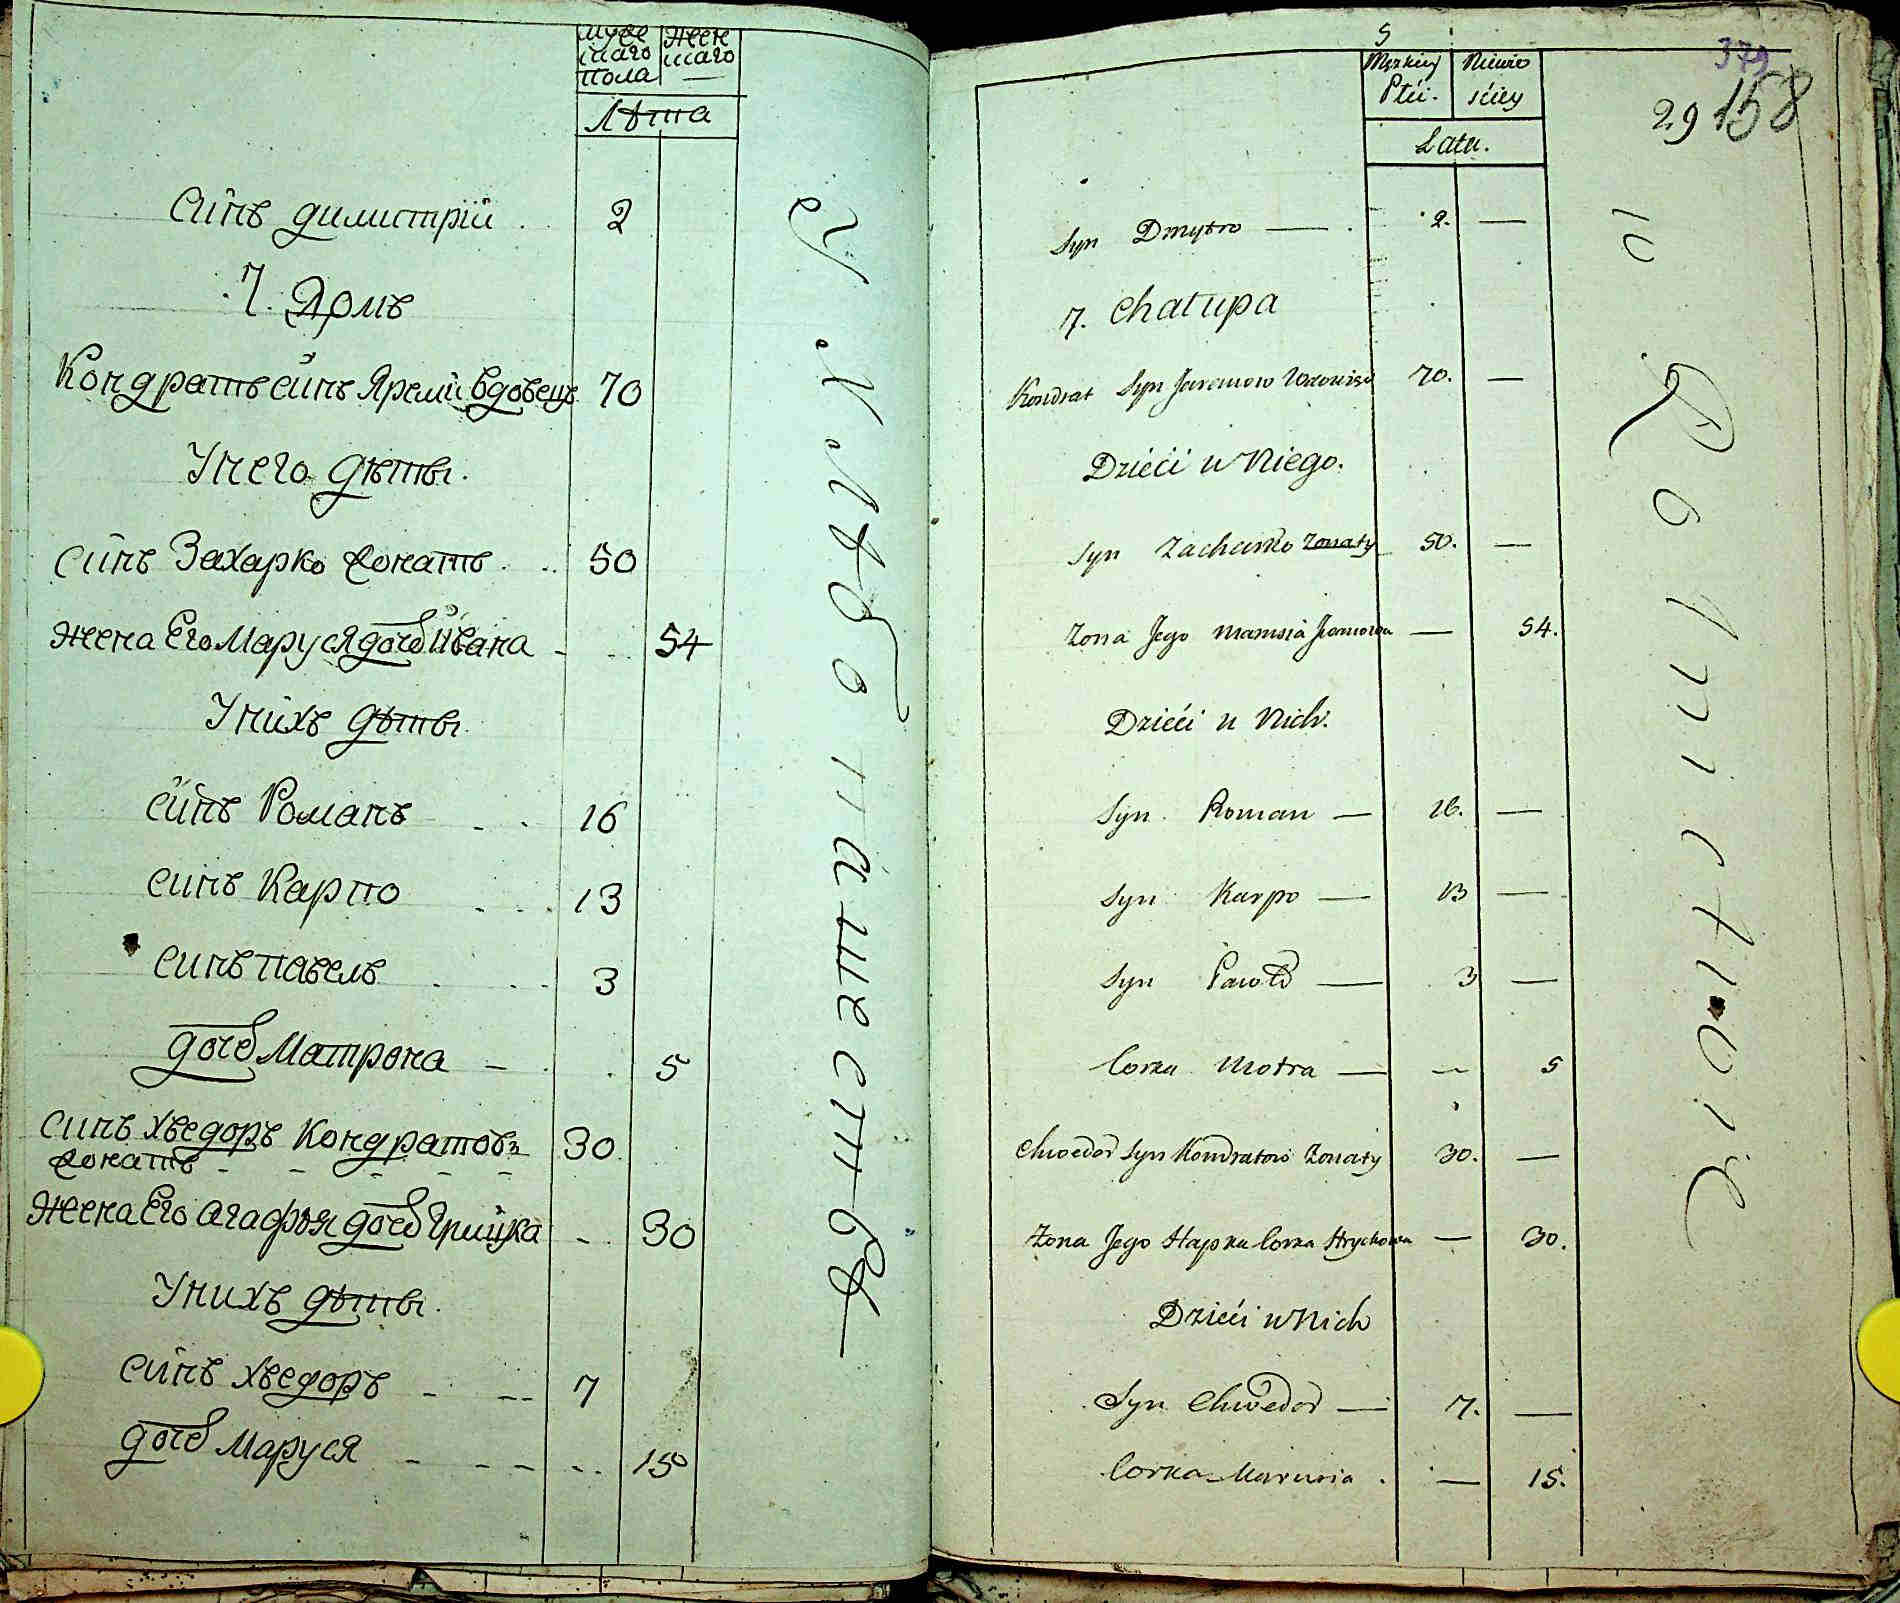 Муже
скаго
пола
Жен
скаго
Лѣта
Синъ Димитрій 2
7. Домъ
Кондратъ синъ Яреми вдовецъ 70
У него дѣты.
Синъ Захарко жонатъ 50
Жена Его Маруся дочь Ивана 54
У нихъ дѣты.
Синъ Романъ 16
Синъ Карпо 13
Синъ Павелъ 3
дочь Матрона 5
Синъ Хведоръ Кондратовъ 30
жонатъ
Жена Его Агафья дочь Грицка 30
У нихъ дѣты.
Синъ Хведоръ 7
дочь Маруся 15
5
379
29 158
Męzkiey
Płći.
Niewie
ściey
Lata.
Syn Dmytro — 2. —
7. Chałupa
Kondrat Syn Jaremow Wdowiec 70. —
Dzieći u Niego.
Syn Zacharko Żonaty 50. —
Żona Jego Marusia Iwanowa — 54.
Dzieći u Nich.
Syn Roman — 16. —
Syn Karpo — 13 —
Syn Pawło — 3 —
Corka Motra — — 5
Chwedor Syn Kondratow Żonaty 30. —
Żona Jego Hapka Corka Hryckowa — 30.
Dzieći u Nich
Syn Chwedor — 7. —
Corka Marusia . — 15.